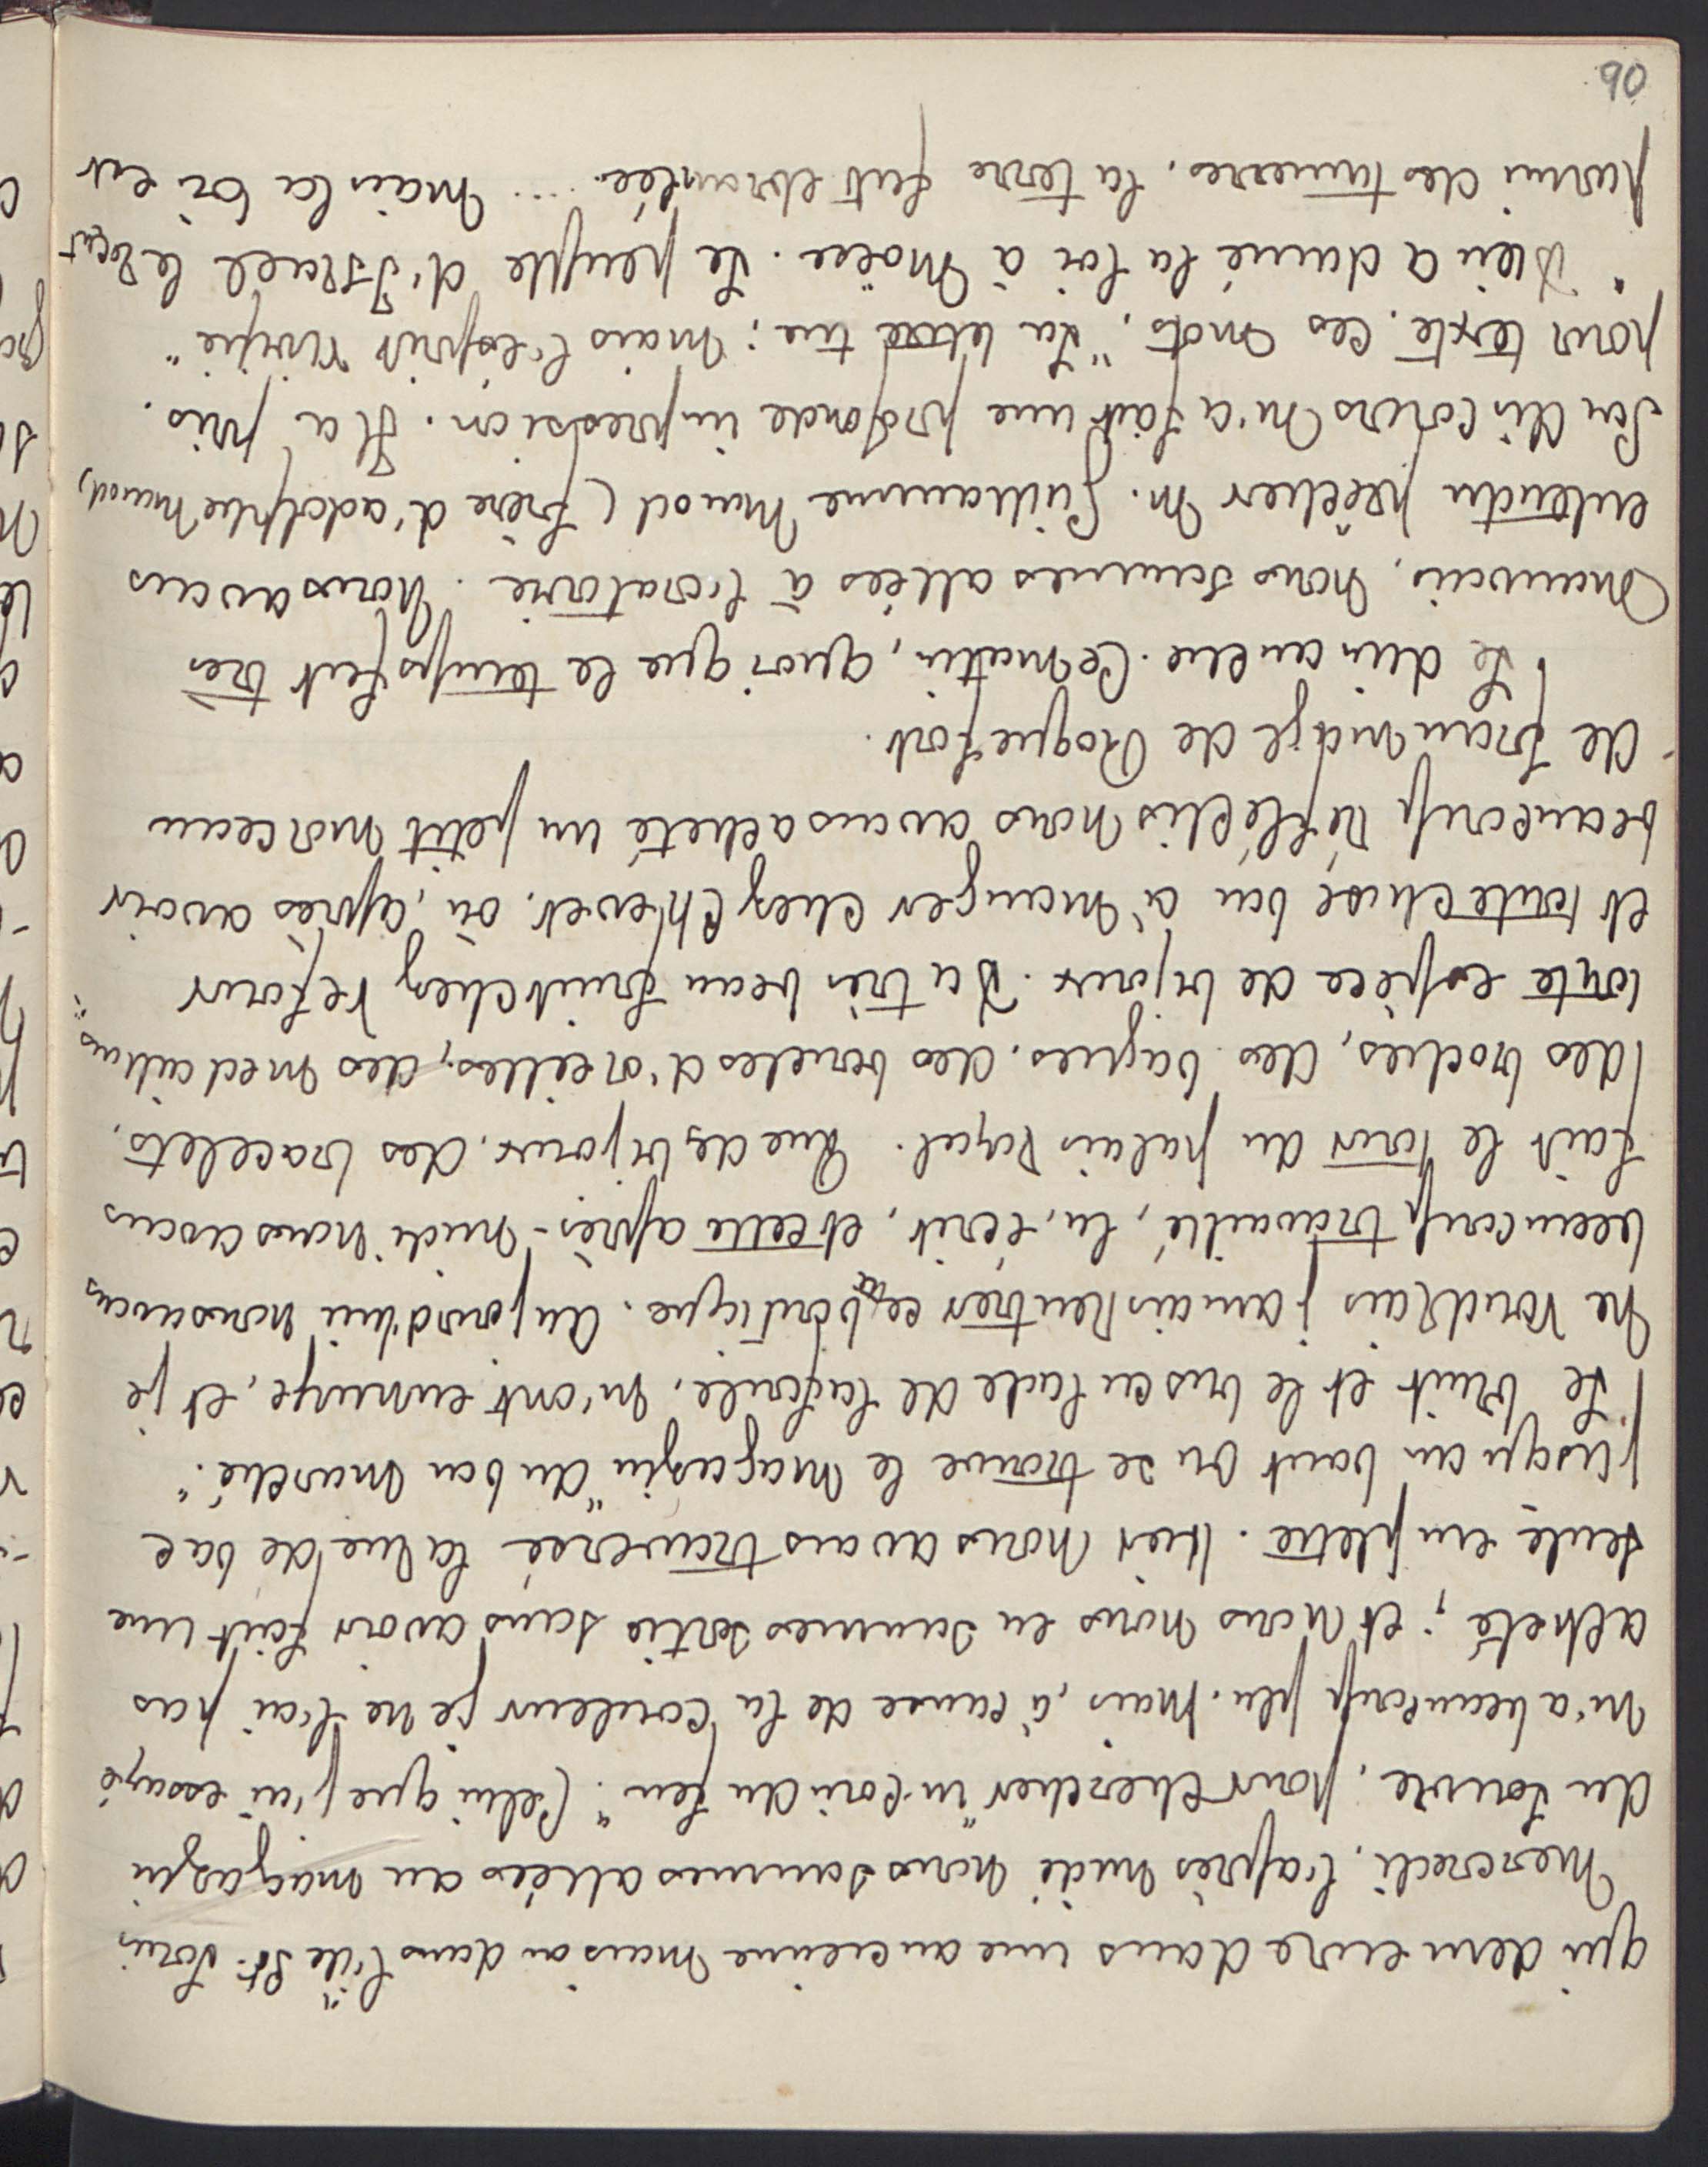 qui demeure dans une ancienne maison dans l'île St. Louis
Mercredi, l'après midi nous sommes allées au magazin
du Louvre, pour chercher "un coin du feu". Celui que j'ai essayé
m'a beaucoup plu. Mais, à cause de la couleur je ne l'ai pas
acheté; et nous nous en sommes sortis sans avoir fait une
seule emplette. Hier nous avons traversé la rue de bac
jusqu'au bout ou se trouve le magazin "du bon marché".
Le bruit et le bruscutade de la foule, m'ont ennuyé, et je
ne voudrais jamais rentrer ce boutique. Aujourd'hui nous avons
beaucoup travaillé, lu, écrit, et cette après-midi nous avons
fait le tour du palais royal. Que de bijoux, des bracelets,
des broches, des bagues, des boucles d'oreilles, des medaillons
toute espèce de bijoux. Du très beau fruit chez
et toute chose bon à manger chez Chevet, où, après avoir
beaucoup réfléchis nous avons acheté un petit morceau
de frommage de Roquefort.
Le dimanche. Ce matin, quoique le temps fut très
mauvais, nous sommes allées à l'oratoire. Nous avons
entendu prêcher M. Guillaume Monod (frère d'adolphe Monod,
Son discours m'a fait une profonde impression. Il a pris.
pour texte, ces mots, "La lettre tue; mais l'esprit vivifie"
"Dieu a donné la loi à Moïse. Le peuple d'Israel le reçut
parmi des tonnerres, la terre fut ebranlée ... Mais la loi est
90